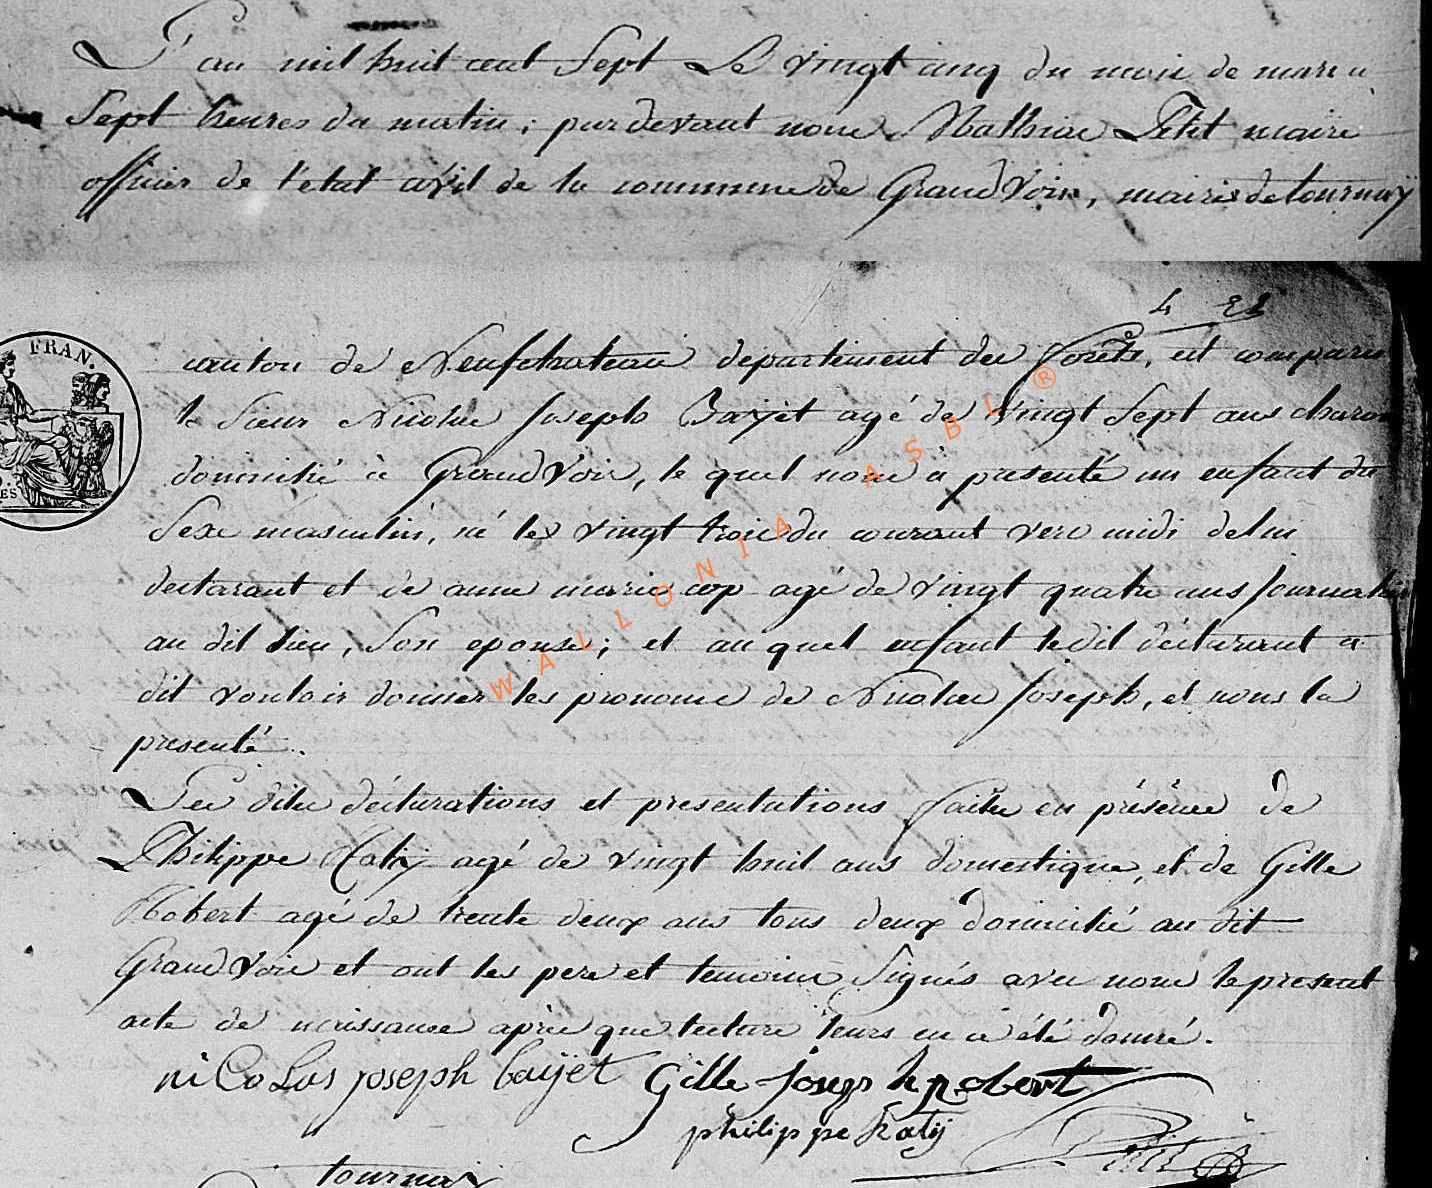 L'an mil huit cent Sept Le vingt cinq du mois de mars a
Sept heures du matin ; pardevant nous Mathias Petit maire
officier de l'etat civil de la commune de Grand Voir, mairie de tournay
4 
FRAN.
canton de Neufchateau departement des forêts, est comparu
le Sieur Nicolas Joseph Bayet agé de vingt Sept ans charon
domicilié à Grand Voir, le quel nous à presenté un enfant du
Sexe masculin, né le vingt trois du courant vers midi de lui
declarant et de anne marie cop agé de vingt quatre ans Journaliere
au dit lieu, Son epouse ; et au quel enfant ledit déclarant a
dit vouloir donner les pronoms de Nicolas Joseph, et nous la
presenté.
Les dites déclarations et presentations faites en présence de
Philippe Katy agé de vingt huit ans domestique, et de Gille
Robert agé de trente deux ans tous deux domicilié au dit
Grand Voir et ont les pere et temoins Signés avec nous le present
acte de naissance après que lecture leurs en a été donné.
niCoLas joseph baÿet Gille Joseph robert
philippe katÿ
Petit
tournay
WALLONIA ASBL ®